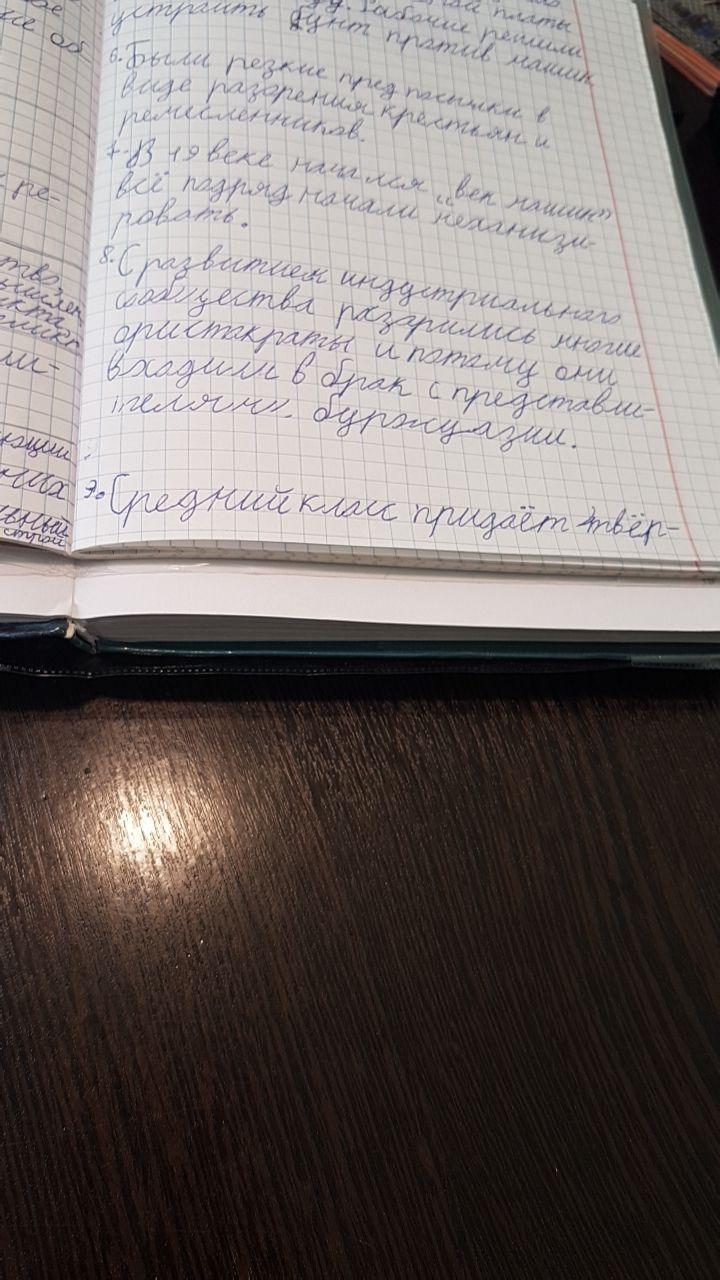 ое
же об
ре-
тво,
ли-
них
льный
строй
платы
Рабочие решили
устраить бунт против машин
6. Были резкие предпосылки в
виде разорения крестьян и
ремесленников.
7. В 19 веке начался "век машин"
всё подряд начали механизи-
ровать.
8. С развитием индустриального
сообщества разарились многие
аристакраты и потаму они
входили в брак с представи-
телями буржуазии.
9. Средний класс придаёт твёр-